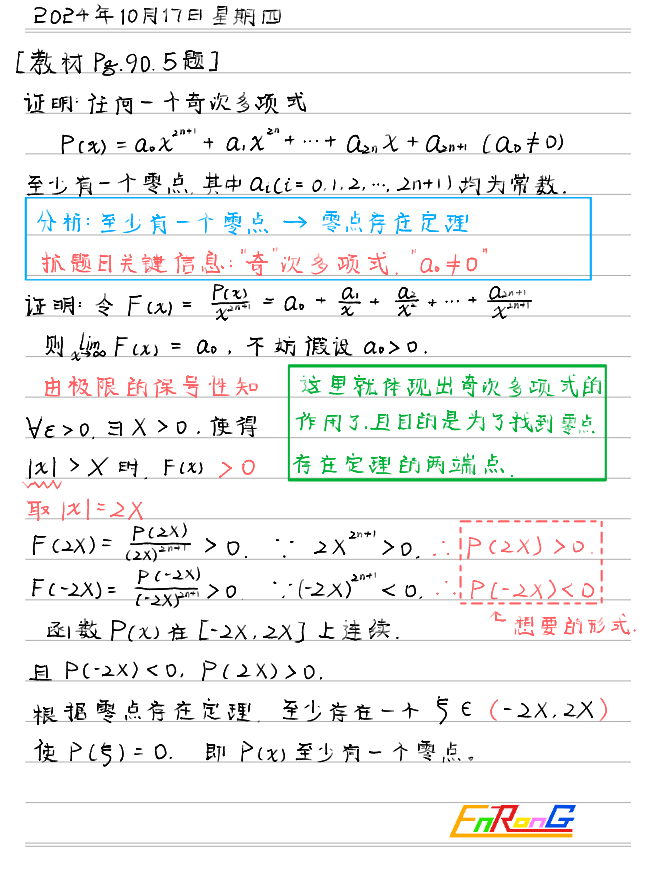 2024年10月17日 星期四
[教材 Pg.90. 5题]
证明: 任何一个奇次多项式
P(x) = a₀x²ⁿ⁺¹ + a₁x²ⁿ + ⋯ + a₂ₙx + a₂ₙ₊₁ (a₀≠0)
至少有一个零点, 其中 aᵢ(i = 0,1,2,⋯,2n+1) 均为常数.
分析: 至少有一个零点 → 零点存在定理
抓题目关键信息: "奇"次多项式, "a₀≠0"
证明: 令 F(x) = P(x)/x²ⁿ⁺¹ = a₀ + a₁/x + a₂/x² + ⋯ + a₂ₙ₊₁/x²ⁿ⁺¹
则 lim x→∞ F(x) = a₀, 不妨假设 a₀>0.
由极限的保号性知
∀ε>0, ∃X>0, 使得
|x| > X 时, F(x) > 0
这里就体现出奇次多项式的
作用了.且目的是为了找到零点
存在定理的两端点.
取 |x| = 2X
F(2X) = P(2X)/(2X)²ⁿ⁺¹ > 0. ∵ 2X²ⁿ⁺¹ > 0, ∴ P(2X) > 0.
F(-2X) = P(-2X)/(-2X)²ⁿ⁺¹ > 0 ∵ (-2X)²ⁿ⁺¹ < 0, ∴ P(-2X) < 0
↖ 想要的形式.
函数 P(x) 在 [-2X, 2X] 上连续.
且 P(-2X) < 0, P(2X) > 0.
根据零点存在定理, 至少存在一个 ξ ∈ (-2X, 2X)
使 P(ξ) = 0. 即 P(x) 至少有一个零点。
EnRonG